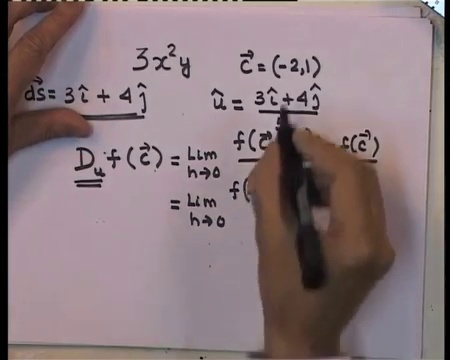 3x²y c⃗ = (-2,1)
d⃗s = 3î + 4ĵ û = 3î + 4ĵ
D_u f(c⃗) = Lim h→0 f(c⃗ f(c⃗)
= Lim h→0 f(